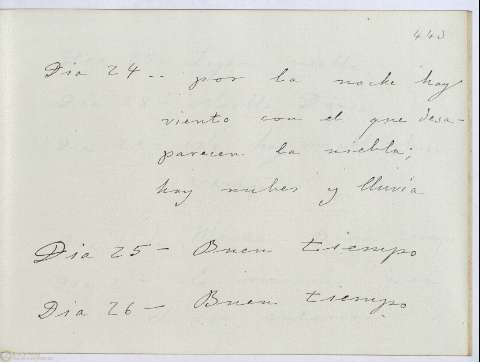 443
Dia 24 -- por la noche hay
viento con el que desa-
parecen la niebla;
hay nubes y lluvia
Dia 25 - Buen tiempo
Dia 26 - Buen tiempo